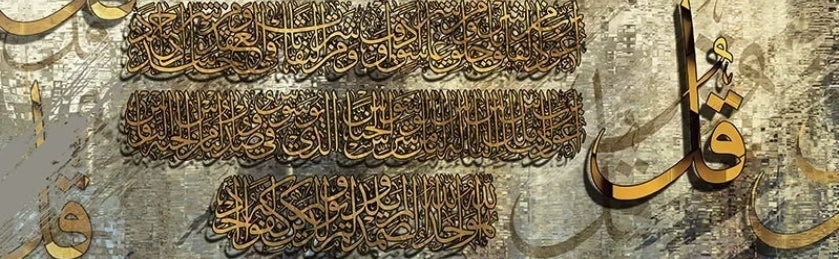 قُلْ
أعوذ برب الفلق من شر ما خلق ومن شر غاسق إذا وقب ومن شر النفاثات في العقد ومن شر حاسد إذا حسد
أعوذ برب الناس ملك الناس إله الناس من شر الوسواس الخناس الذي يوسوس في صدور الناس من الجنة والناس
هو الله أحد الله الصمد لم يلد ولم يولد ولم يكن له كفوا أحد
قل